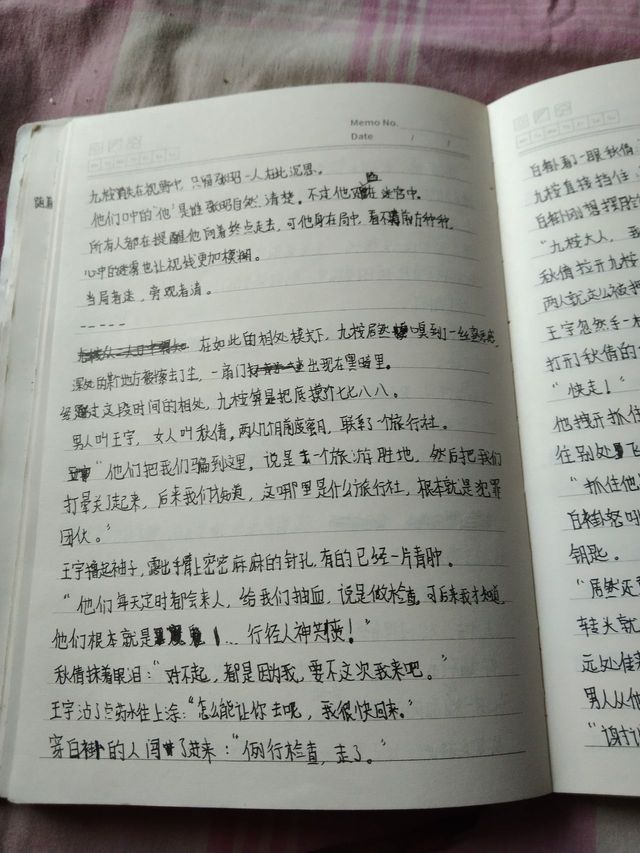 Memo No.
Date / /
九桉消失在视野中,只留张昭一人在此沉思。
他们口中的“他”是谁张昭自然清楚。不过他还在迷宫中。
所有人都在提醒他向着终点走去,可他身在局中,看不清前方种种,
心中的迷雾也让视线更加模糊。
当局者迷,旁观者清。
-----
在如此的相处模式下,九桉居然嗅到了一丝
深处的某个地方被擦去了尘,一扇门出现在黑暗里。
经过这段时间的相处,九桉算是把底摸的七七八八。
男人叫王宇,女人叫秋倩,两人几个月前度蜜月,联系了一个旅行社。
“他们把我们骗到这里,说是去一个旅游胜地,然后把我们
打晕关了起来,后来我们才知道,这哪里是什么旅行社,根本就是犯罪
团伙。”
王宇撸起袖子,露出手臂上密密麻麻的针孔,有的已经一片青肿。
“他们每天定时都会来人,给我们抽血,说是做检查,可后来我才知道,
他们根本就是...行径人神共愤!”
秋倩抹着眼泪:“对不起,都是因为我,要不这次我来吧。”
王宇沾了点药水往上涂:“怎么能让你去呢,我很快回来。”
穿白褂的人闯了进来:“例行检查,走了。”
白褂看了一眼秋倩
九桉直接挡住
白褂刚想
“九桉大人,
秋倩拉开九桉
两人就这么被
王宇忽然手一
打了秋倩的
“快走!”
他拽开抓住
往别处飞
“抓住他
白褂怒吼
钥匙。
“居然还
转头就
远处
男人从他
“谢谢